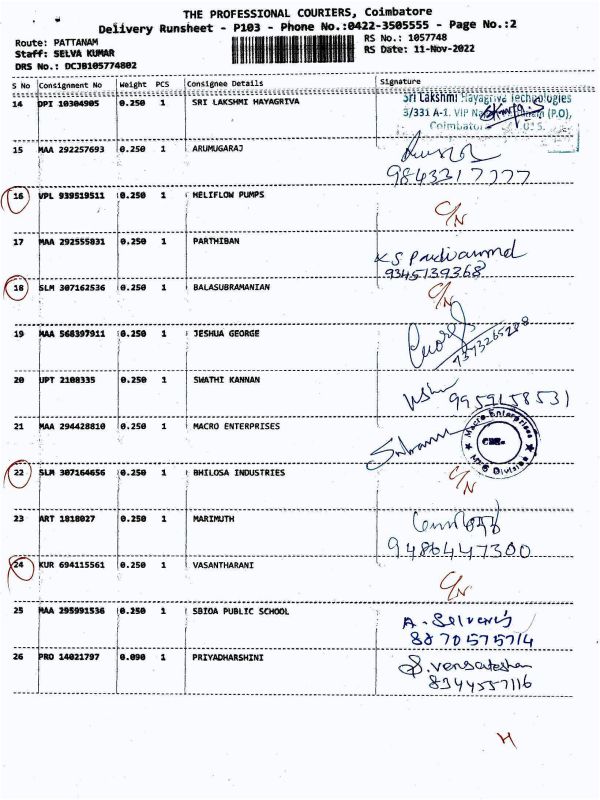 THE PROFESSIONAL COURIERS, Coimbatore
Delivery Runsheet - P103 - Phone No.:0422-3505555 - Page No.:2
Route: PATTANAM
Staff: SELVA KUMAR
DRS No.: DCJB105774802
RS No.: 1057748
RS Date: 11-Nov-2022
S No Consignment No Weight PCS Consignee Details Signature
14 DPI 10304905 0.250 1 SRI LAKSHMI HAYAGRIVA
Sri Lakshmi Hayagriva Technologies
3/331 A-1, VIP Na (P.O),
Coimbator
15 MAA 292257693 0.250 1 ARUMUGARAJ
9843317777
16 VPL 939519511 0.250 1 HELIFLOW PUMPS C/N
17 MAA 292555831 0.250 1 PARTHIBAN
9345139368
18 SLM 307162536 0.250 1 BALASUBRAMANIAN C/N
19 MAA 568397911 0.250 1 JESHUA GEORGE
7373265288
20 UPT 2108335 0.250 1 SWATHI KANNAN
9959158531
21 MAA 294428810 0.250 1 MACRO ENTERPRISES
Macro Enterprises
CBE.
MFG Division
22 SLM 307164656 0.250 1 BHILOSA INDUSTRIES C/N
23 ART 1818027 0.250 1 MARIMUTH
9486447300
24 KUR 694115561 0.250 1 VASANTHARANI C/N
25 MAA 295991536 0.250 1 SBIOA PUBLIC SCHOOL
8870575714
26 PRO 14021797 0.090 1 PRIYADHARSHINI
S. Venkateshan
8344557116